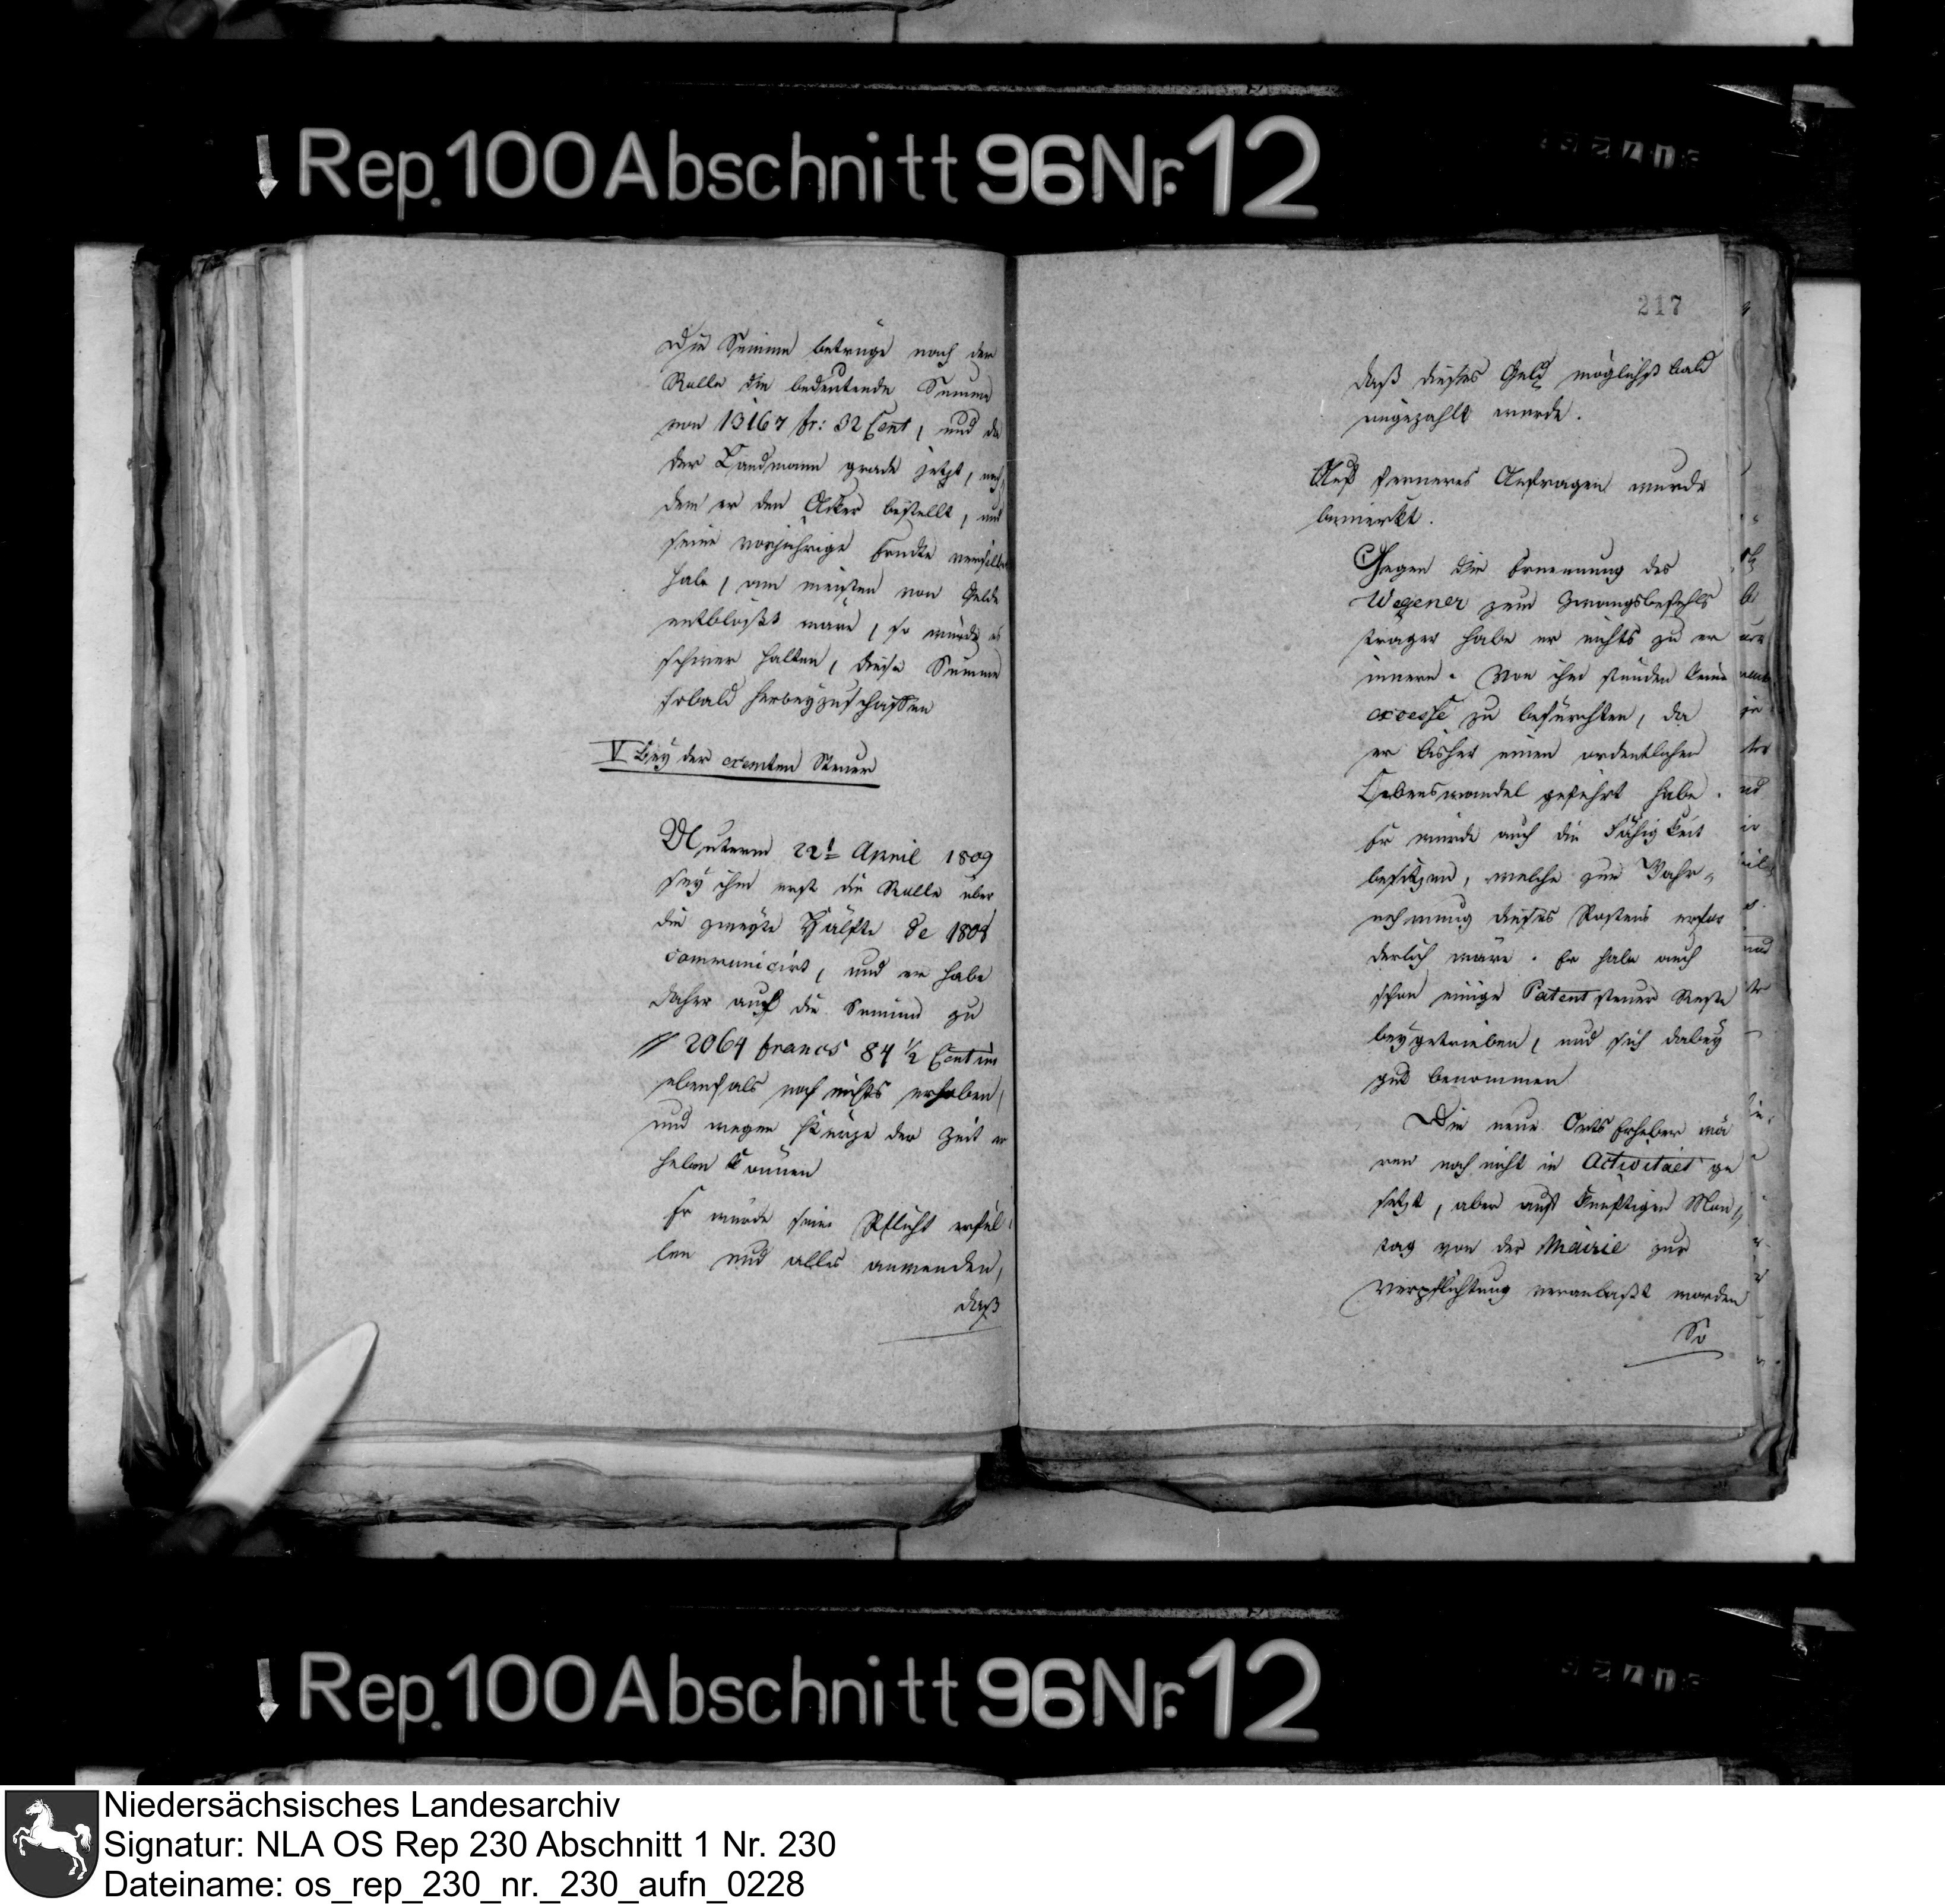 Rep. 100 Abschnitt 96 Nr. 12
Die Summe betrüge nach der
Rolle die bedeutende Summe
von 13167 fr: 32 Cent, und da
der Landmann grade jetzt, nach
dem er den Acker bestellt, und
seine vorjährige Erndte versilbert
habe, am meisten von Gelde
entblößt wäre, so würde es
schwer halten, diese Summe
sobald herbeyzuschaffen
V Bey der exemten Steuer
Unterm 22t April 1809
sey ihm erst die Rolle über
die zweyte Hälfte de 1808
communicirt, und er habe
daher auch die Summe zu
// 2064 francs 84 1/2 Centim
ebenfals noch nichts erhoben,
und wegen Kürze der Zeit er
heben können
Er würde seine Pflicht erfül
len und alles anwenden,
daß
217
daß dieses Geld möglichst bald
eingezahlt werde.
Auf ferneres Anfragen wurde
bemerkt.
Gegen die Ernennung des
Wegener zum Zwangsbefehls
träger habe er nichts zu er
innern. Von ihm stünden keine
excesse zu befürchten, da
er bisher einen ordentlichen
Lebenswandel geführt habe.
Er würde auch die Fähigkeit
besitzen, welche zur Wahr„
nehmung dieses Postens erfor
derlich wäre. Er habe auch
schon einige Patentsteuer Reste
beygetrieben, und sich dabey
gut benommen
Die neue Orts Erheber wä
ren noch nicht in Activitäet ge
setzt, aber auf künftigen Mon„
tag von der Mairie zur
Verpflichtung veranlaßt worden
So
Rep. 100 Abschnitt 96 Nr. 12
Niedersächsisches Landesarchiv
Signatur: NLA OS Rep 230 Abschnitt 1 Nr. 230
Dateiname: os_rep_230_nr._230_aufn_0228